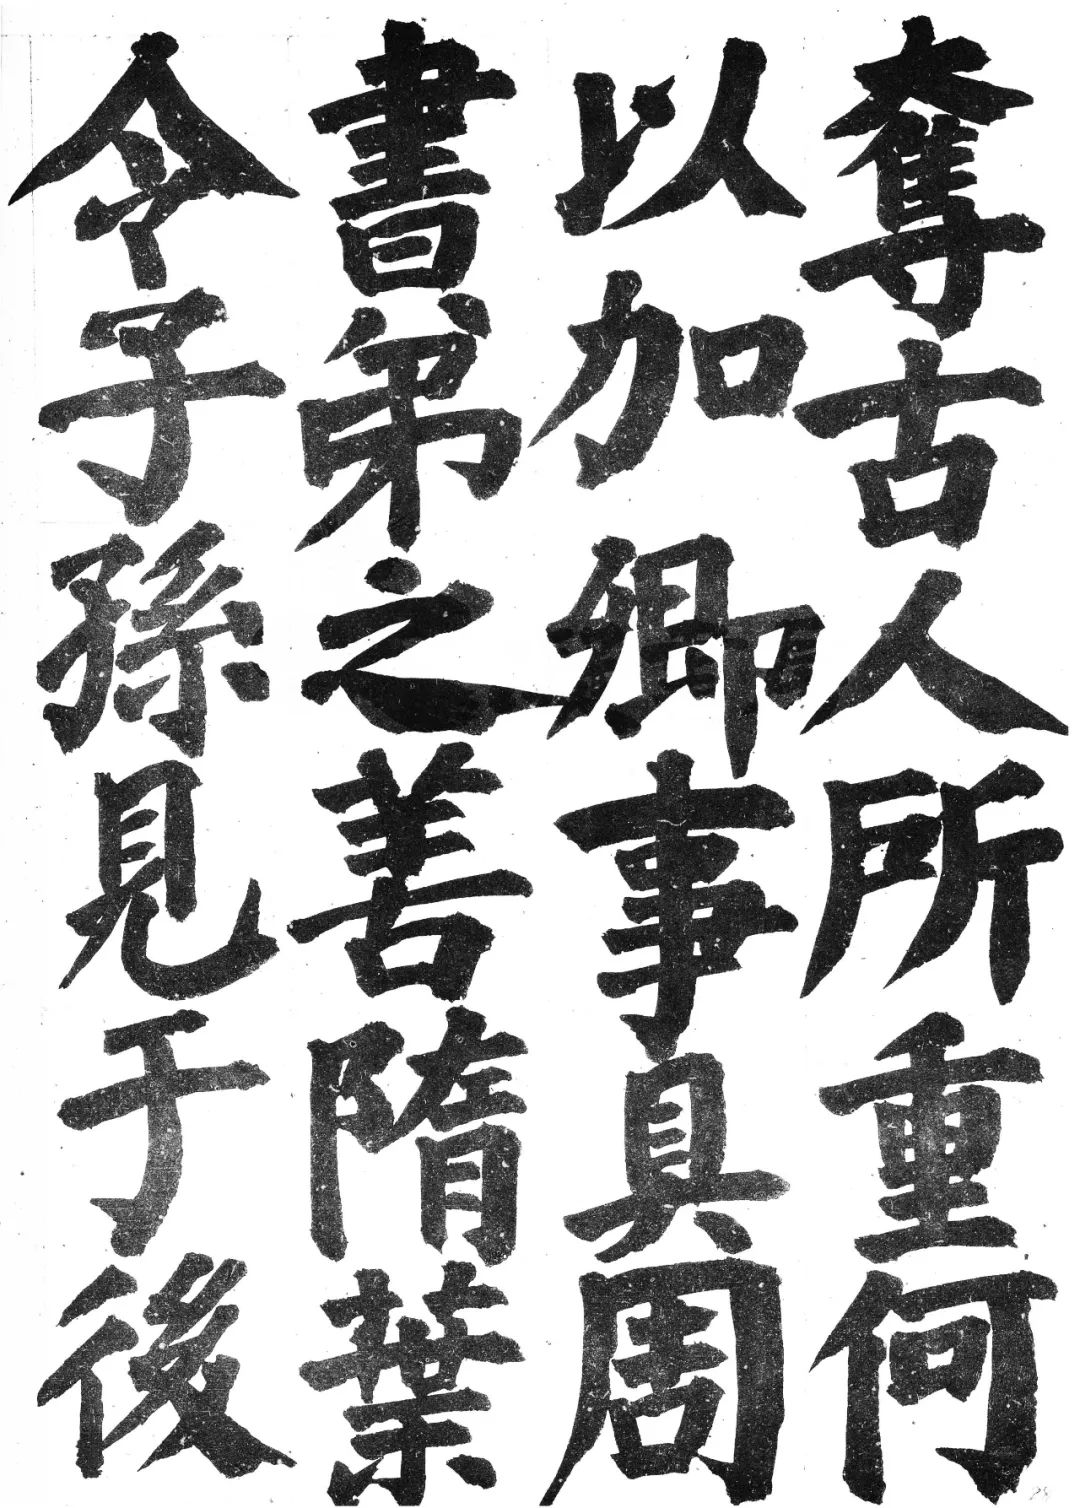 奪古人所重何
以加卿事具周
書弟之善隋葉
令子孫見于後